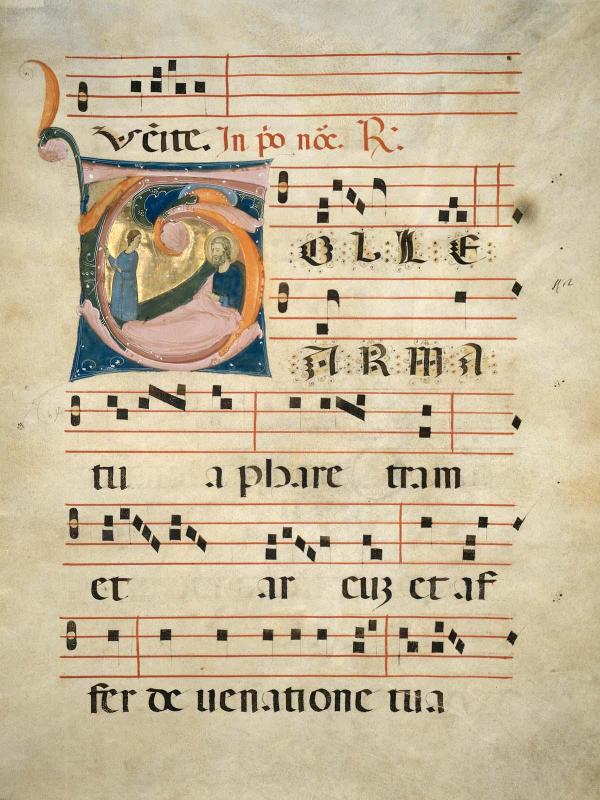 Vēite. In p̄o nōc. R:
TOLLE
ARMA
tu a phare tram
et ar cuʒ et af
fer de uenatione tua